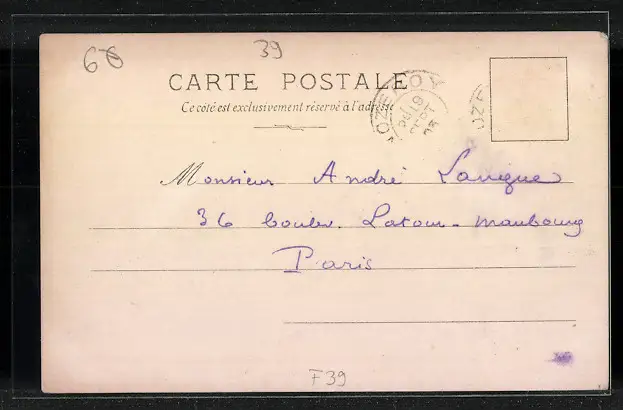 66
39
CARTE POSTALE
Ce côté est exclusivement réservé à l'adresse
Monsieur André Lavigne
36 boulev. Latour-Maubourg
Paris
F39